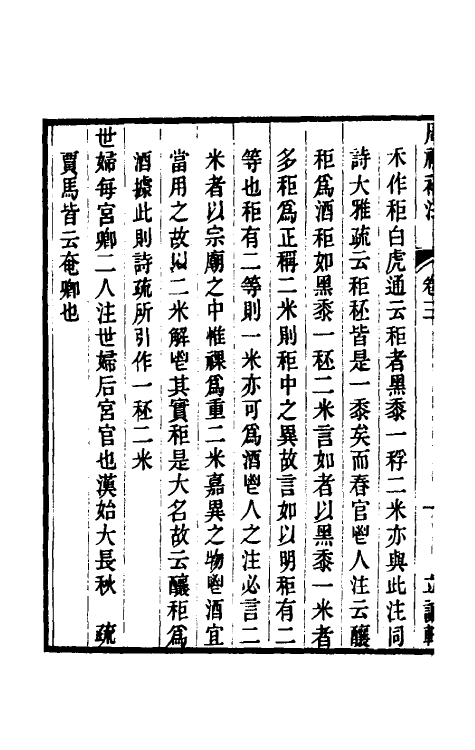 周禮補注 卷三 立誠軒
禾作秬白虎通云秬者黑黍一稃二米亦與此注同
詩大雅疏云秬秠皆是一黍矣而春官鬯人注云釀
秬爲酒秬如黑黍一秠二米言如者以黑黍一米者
多秬爲正稱二米則秬中之異故言如以明秬有二
等也秬有二等則一米亦可爲酒鬯人之注必言二
米者以宗廟之中惟祼爲重二米嘉異之物鬯酒宜
當用之故以二米解鬯其實秬是大名故云釀秬爲
酒據此則詩疏所引作一秠二米
世婦每宮卿二人注世婦后宮官也漢始大長秋 疏
賈馬皆云奄卿也